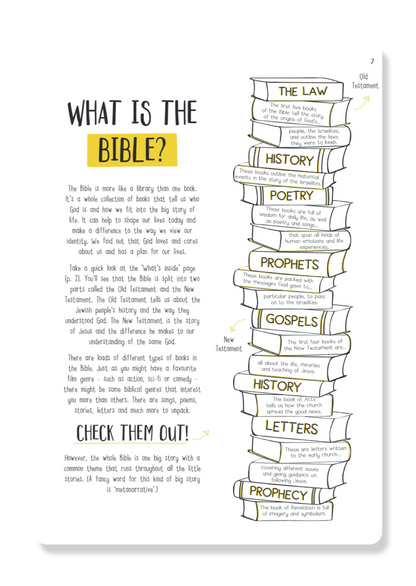 7
WHAT IS THE
BIBLE?
The Bible is more like a library than one book.
It's a whole collection of books that tell us who
God is and how we fit into the big story of
life. It can help to shape our lives today and
make a difference to the way we view our
identity. We find out that God loves and cares
about us and has a plan for our lives.
Take a quick look at the "what's inside" page
(p. 2). You'll see that the Bible is split into two
parts called the Old Testament and the New
Testament. The Old Testament tells us about the
Jewish people's history and the way they
understood God. The New Testament is the story
of Jesus and the difference he makes to our
understanding of the same God.
There are loads of different types of books in
the Bible. Just as you might have a favourite
film genre - such as action, sci-fi or comedy -
there might be some biblical genres that interest
you more than others. There are songs, poems,
stories, letters and much more to unpack.
CHECK THEM OUT!
However, the whole Bible is one big story with a
common theme that runs throughout all the little
stories. (A fancy word for this kind of big story
is 'metanarrative'.)
Old
Testament
THE LAW
The first five books
of the Bible tell the story
of the origins of God's...
people, the Israelites,
and outline the laws
they were to keep.
HISTORY
These books outline the historical
events in the story of the Israelites.
POETRY
These books are full of
wisdom for daily life, as well
as poetry and songs...
that span all kinds of
human emotions and life
experiences.
PROPHETS
These books are packed with
the messages God gave to...
particular people, to pass
on to the Israelites.
New
Testament
GOSPELS
The first four books of
the New Testament are...
all about the life, miracles
and teaching of Jesus.
HISTORY
The book of Acts
tells us how the church
spread the good news.
LETTERS
These are letters written
to the early church...
covering different issues
and giving guidance on
following Jesus.
PROPHECY
The book of Revelation is full
of imagery and symbolism.